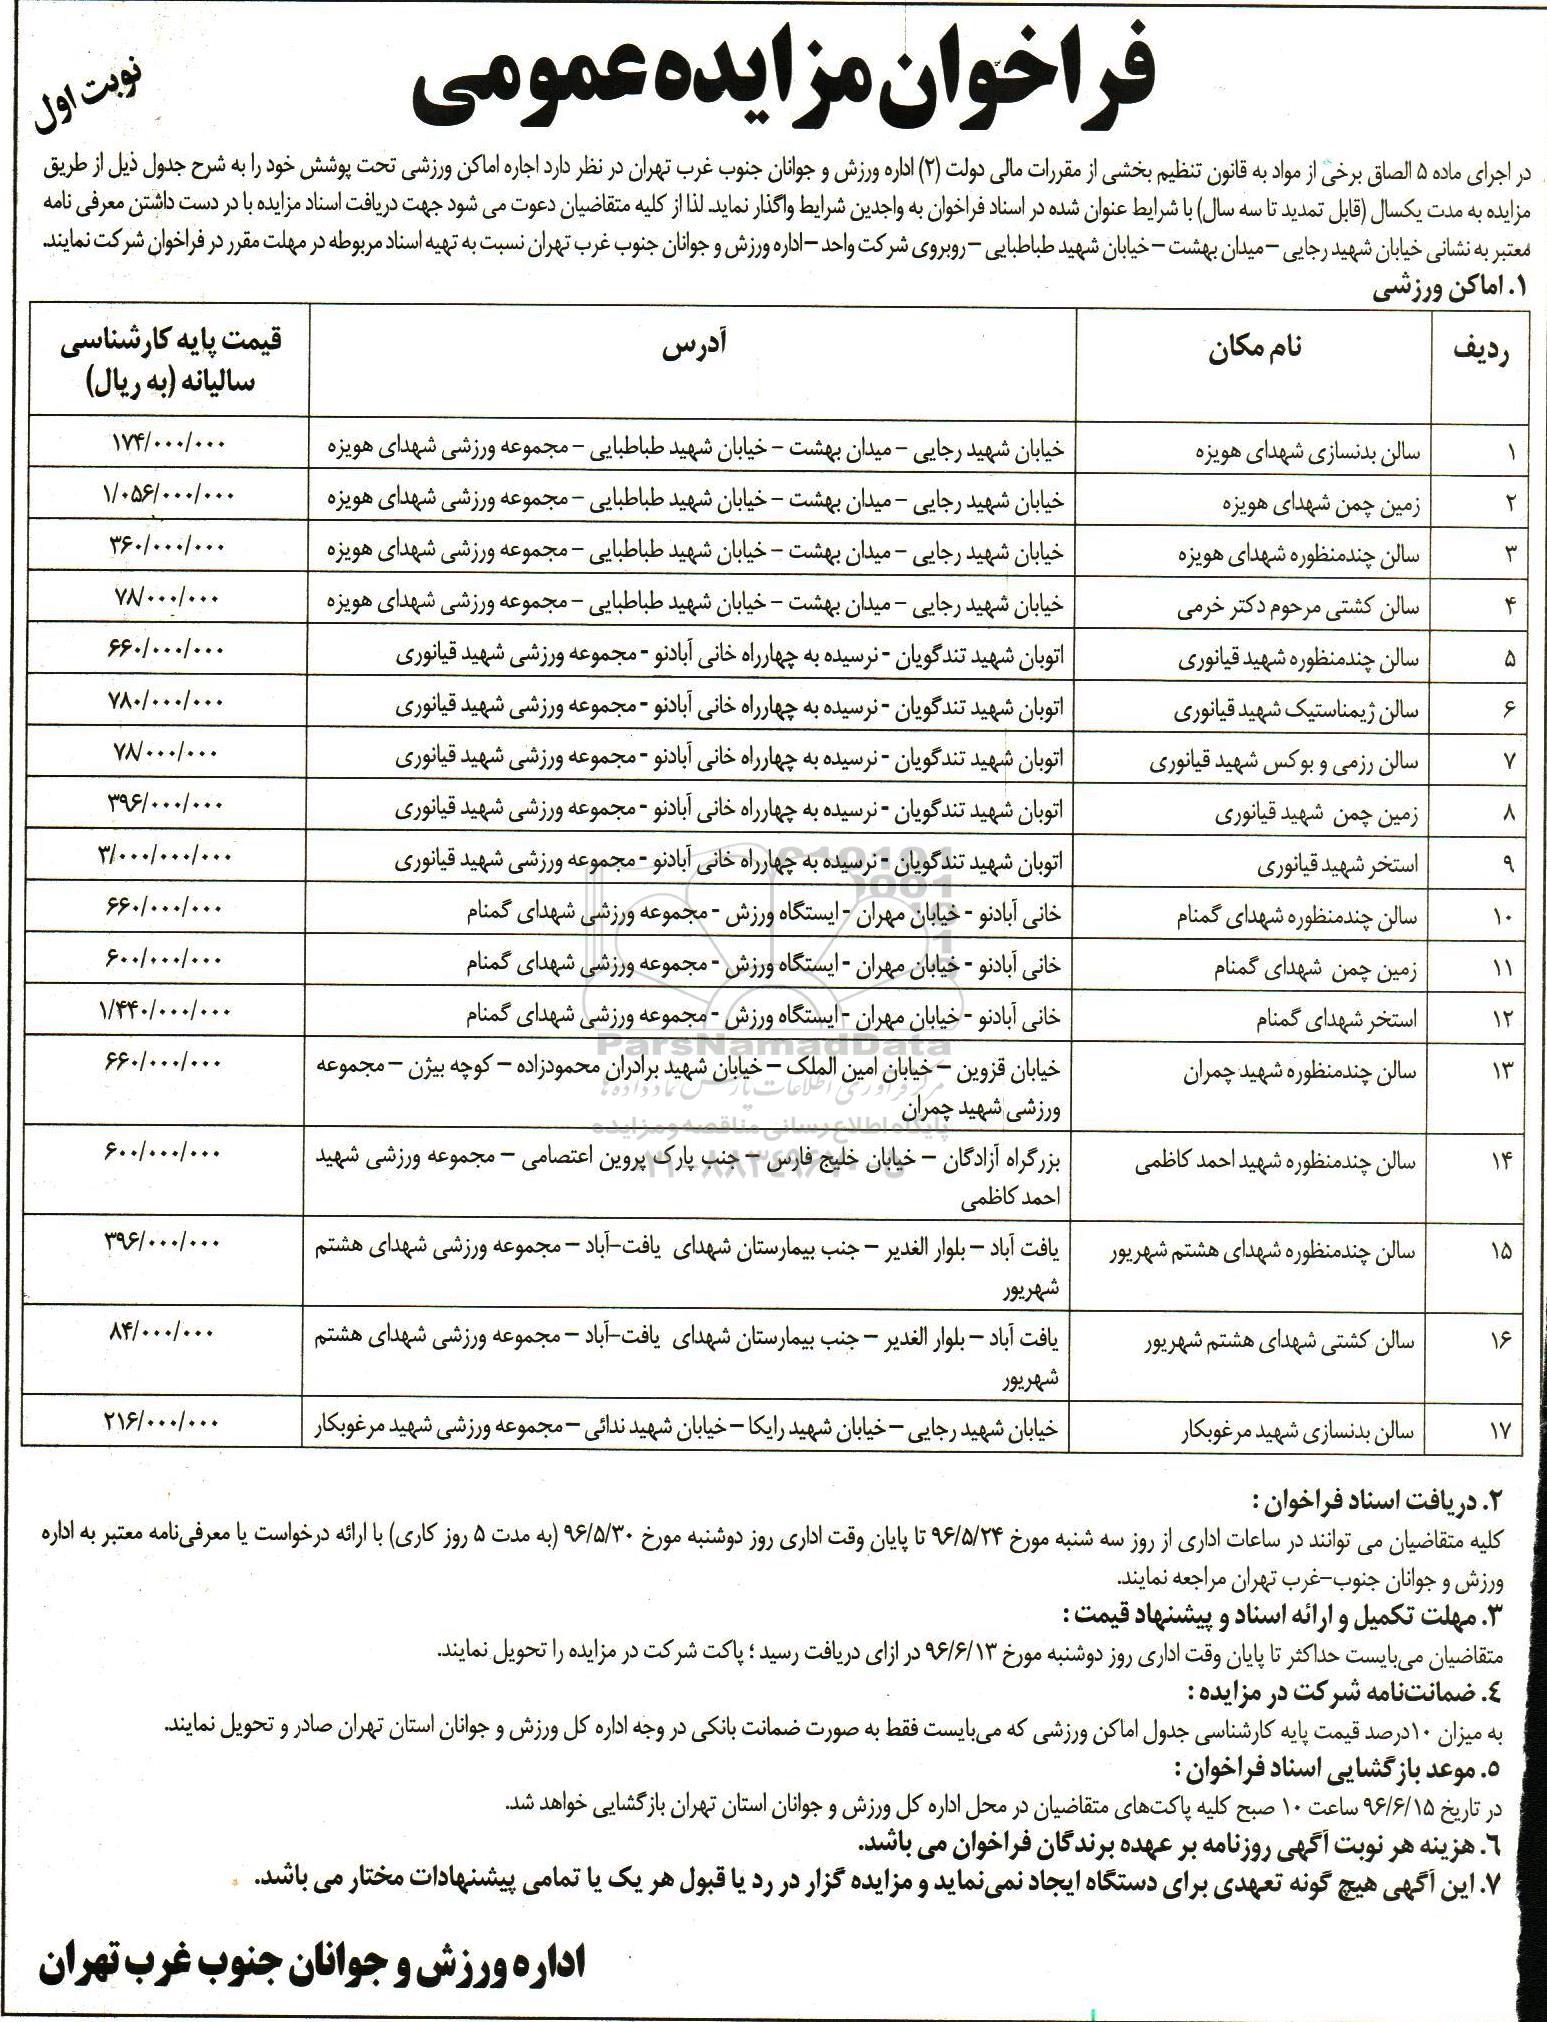 فراخوان مزایده عمومی
نوبت اول
در اجرای ماده ۵ الصاق برخی از مواد به قانون تنظیم بخشی از مقررات مالی دولت (۲) اداره ورزش و جوانان جنوب غرب تهران در نظر دارد اجاره اماکن ورزشی تحت پوشش خود را به شرح جدول ذیل از طریق
مزایده به مدت یکسال (قابل تمدید تا سه سال) با شرایط عنوان شده در اسناد فراخوان به واجدین شرایط واگذار نماید. لذا از کلیه متقاضیان دعوت می شود جهت دریافت اسناد مزایده با در دست داشتن معرفی نامه
معتبر به نشانی خیابان شهید رجایی – میدان بهشت – خیابان شهید طباطبایی – روبروی شرکت واحد – اداره ورزش و جوانان جنوب غرب تهران نسبت به تهیه اسناد مربوطه در مهلت مقرر در فراخوان شرکت نمایند.
۱. اماکن ورزشی
ردیف نام مکان آدرس قیمت پایه کارشناسی
سالیانه (به ریال)
۱ سالن بدنسازی شهدای هویزه خیابان شهید رجایی – میدان بهشت – خیابان شهید طباطبایی – مجموعه ورزشی شهدای هویزه ۱۷۴/۰۰۰/۰۰۰
۲ زمین چمن شهدای هویزه خیابان شهید رجایی – میدان بهشت – خیابان شهید طباطبایی – مجموعه ورزشی شهدای هویزه ۱/۰۵۶/۰۰۰/۰۰۰
۳ سالن چندمنظوره شهدای هویزه خیابان شهید رجایی – میدان بهشت – خیابان شهید طباطبایی – مجموعه ورزشی شهدای هویزه ۳۶۰/۰۰۰/۰۰۰
۴ سالن کشتی مرحوم دکتر خرمی خیابان شهید رجایی – میدان بهشت – خیابان شهید طباطبایی – مجموعه ورزشی شهدای هویزه ۷۸/۰۰۰/۰۰۰
۵ سالن چندمنظوره شهید قیانوری اتوبان شهید تندگویان - نرسیده به چهارراه خانی آبادنو - مجموعه ورزشی شهید قیانوری ۶۶۰/۰۰۰/۰۰۰
۶ سالن ژیمناستیک شهید قیانوری اتوبان شهید تندگویان - نرسیده به چهارراه خانی آبادنو - مجموعه ورزشی شهید قیانوری ۷۸۰/۰۰۰/۰۰۰
۷ سالن رزمی و بوکس شهید قیانوری اتوبان شهید تندگویان - نرسیده به چهارراه خانی آبادنو - مجموعه ورزشی شهید قیانوری ۷۸/۰۰۰/۰۰۰
۸ زمین چمن شهید قیانوری اتوبان شهید تندگویان - نرسیده به چهارراه خانی آبادنو - مجموعه ورزشی شهید قیانوری ۳۹۶/۰۰۰/۰۰۰
۹ استخر شهید قیانوری اتوبان شهید تندگویان - نرسیده به چهارراه خانی آبادنو - مجموعه ورزشی شهید قیانوری ۳/۰۰۰/۰۰۰/۰۰۰
۱۰ سالن چندمنظوره شهدای گمنام خانی آبادنو - خیابان مهران - ایستگاه ورزش - مجموعه ورزشی شهدای گمنام ۶۶۰/۰۰۰/۰۰۰
۱۱ زمین چمن شهدای گمنام خانی آبادنو - خیابان مهران - ایستگاه ورزش - مجموعه ورزشی شهدای گمنام ۶۰۰/۰۰۰/۰۰۰
۱۲ استخر شهدای گمنام خانی آبادنو - خیابان مهران - ایستگاه ورزش - مجموعه ورزشی شهدای گمنام ۱/۴۴۰/۰۰۰/۰۰۰
ParsNamadData
۱۳ سالن چندمنظوره شهید چمران خیابان قزوین – خیابان امین الملک – خیابان شهید برادران محمودزاده – کوچه بیژن – مجموعه ۶۶۰/۰۰۰/۰۰۰
مرکز فرآوری اطلاعات پارس نماد داده ها
ورزشی شهید چمران
پایگاه اطلاع رسانی مناقصه و مزایده
۱۴ سالن چندمنظوره شهید احمد کاظمی بزرگراه آزادگان – خیابان خلیج فارس – جنب پارک پروین اعتصامی – مجموعه ورزشی شهید ۶۰۰/۰۰۰/۰۰۰
احمد کاظمی
۱۵ سالن چندمنظوره شهدای هشتم شهریور یافت آباد – بلوار الغدیر – جنب بیمارستان شهدای یافت–آباد – مجموعه ورزشی شهدای هشتم ۳۹۶/۰۰۰/۰۰۰
شهریور
۱۶ سالن کشتی شهدای هشتم شهریور یافت آباد – بلوار الغدیر – جنب بیمارستان شهدای یافت–آباد – مجموعه ورزشی شهدای هشتم ۸۴/۰۰۰/۰۰۰
شهریور
۱۷ سالن بدنسازی شهید مرغوبکار خیابان شهید رجایی – خیابان شهید رایکا – خیابان شهید ندائی – مجموعه ورزشی شهید مرغوبکار ۲۱۶/۰۰۰/۰۰۰
۲. دریافت اسناد فراخوان :
کلیه متقاضیان می توانند در ساعات اداری از روز سه شنبه مورخ ۹۶/۵/۲۴ تا پایان وقت اداری روز دوشنبه مورخ ۹۶/۵/۳۰ (به مدت ۵ روز کاری) با ارائه درخواست یا معرفی‌نامه معتبر به اداره
ورزش و جوانان جنوب–غرب تهران مراجعه نمایند.
۳. مهلت تکمیل و ارائه اسناد و پیشنهاد قیمت :
متقاضیان می‌بایست حداکثر تا پایان وقت اداری روز دوشنبه مورخ ۹۶/۶/۱۳ در ازای دریافت رسید ؛ پاکت شرکت در مزایده را تحویل نمایند.
۴. ضمانت‌نامه شرکت در مزایده :
به میزان ۱۰درصد قیمت پایه کارشناسی جدول اماکن ورزشی که می‌بایست فقط به صورت ضمانت بانکی در وجه اداره کل ورزش و جوانان استان تهران صادر و تحویل نمایند.
۵. موعد بازگشایی اسناد فراخوان :
در تاریخ ۹۶/۶/۱۵ ساعت ۱۰ صبح کلیه پاکت‌های متقاضیان در محل اداره کل ورزش و جوانان استان تهران بازگشایی خواهد شد.
۶. هزینه هر نوبت آگهی روزنامه بر عهده برندگان فراخوان می باشد.
۷. این آگهی هیچ گونه تعهدی برای دستگاه ایجاد نمی‌نماید و مزایده گزار در رد یا قبول هر یک یا تمامی پیشنهادات مختار می باشد.
اداره ورزش و جوانان جنوب غرب تهران